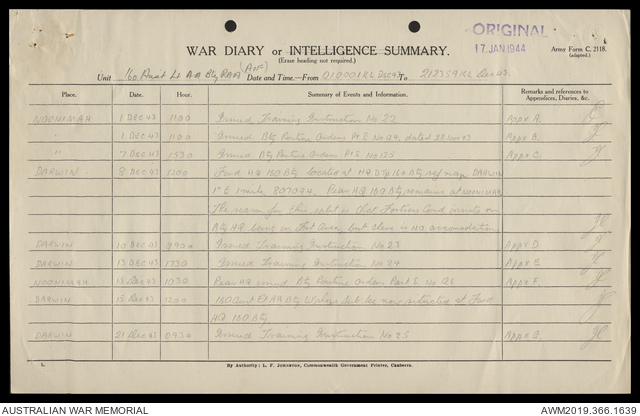 ORIGINAL
17 JAN 1944
Army Form C. 2118.
(adapted.)
WAR DIARY or INTELLIGENCE SUMMARY.
(Erase heading not required.)
Unit 160 Aust Lt AA Bty RAA (AIF) Date and Time—From 010001KL DEC 43 To 212359KL Dec 43.
Place. Date. Hour. Summary of Events and Information. Remarks and references to Appendices, Diaries, &c.
NOONIMAH 1 DEC 43 1100 Issued Training Instruction No 22 Appx A.
1 DEC 43 1100 Issued Bty Routine Orders Pt I No 124, dated 28 Nov 43 Appx B.
" 7 DEC 43 1530 Issued Bty Routine Orders Pt I No 125 Appx C.
DARWIN 8 DEC 43 1200 Fwd HQ 160 Bty located at HQ D Tp 160 Bty ref map DARWIN
1" to 1 mile 807094. Rear HQ 160 Bty remains at NOONIMAH
The reason for this split is that Fortress Comd insists on
Bty HQ being in Fort Area, but there is NO accomodation
DARWIN 10 DEC 43 0900 Issued Training Instruction No 23 Appx D.
DARWIN 13 DEC 43 1730 Issued Training Instruction No 24 Appx E.
NOONIMAH 15 Dec 43 1030 Rear HQ issued Bty Routine Orders Part I No 126 Appx F.
DARWIN 15 Dec 43 1200 160 Aust Lt AA Bty Wksps Sub Sec now situated at Fwd
HQ 160 Bty
DARWIN 21 Dec 43 0930 Issued Training Instruction No 25 Appx G.
By Authority: L. F. JOHNSTON, Commonwealth Government Printer, Canberra.
AUSTRALIAN WAR MEMORIAL AWM2019.366.1639